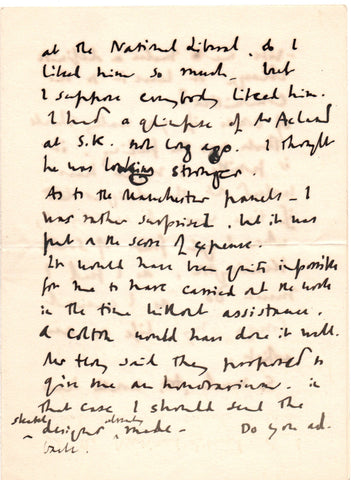 at the National Liberal. do I
liked him so much – but
I suppose everybody liked him.
I had a glimpse of Mr Acland
at S.K. not long ago. I thought
he was looking stronger.
As to the Manchester panels – I
was rather surprised, but it was
put on the score of expense.
It would have been quite impossible
for me to have carried out the work
in the time without assistance.
A Cotton would have done it well.
Mr said they proposed to
give me an honorarium. in
that case I should send the
sketch designs already made – Do you ad.